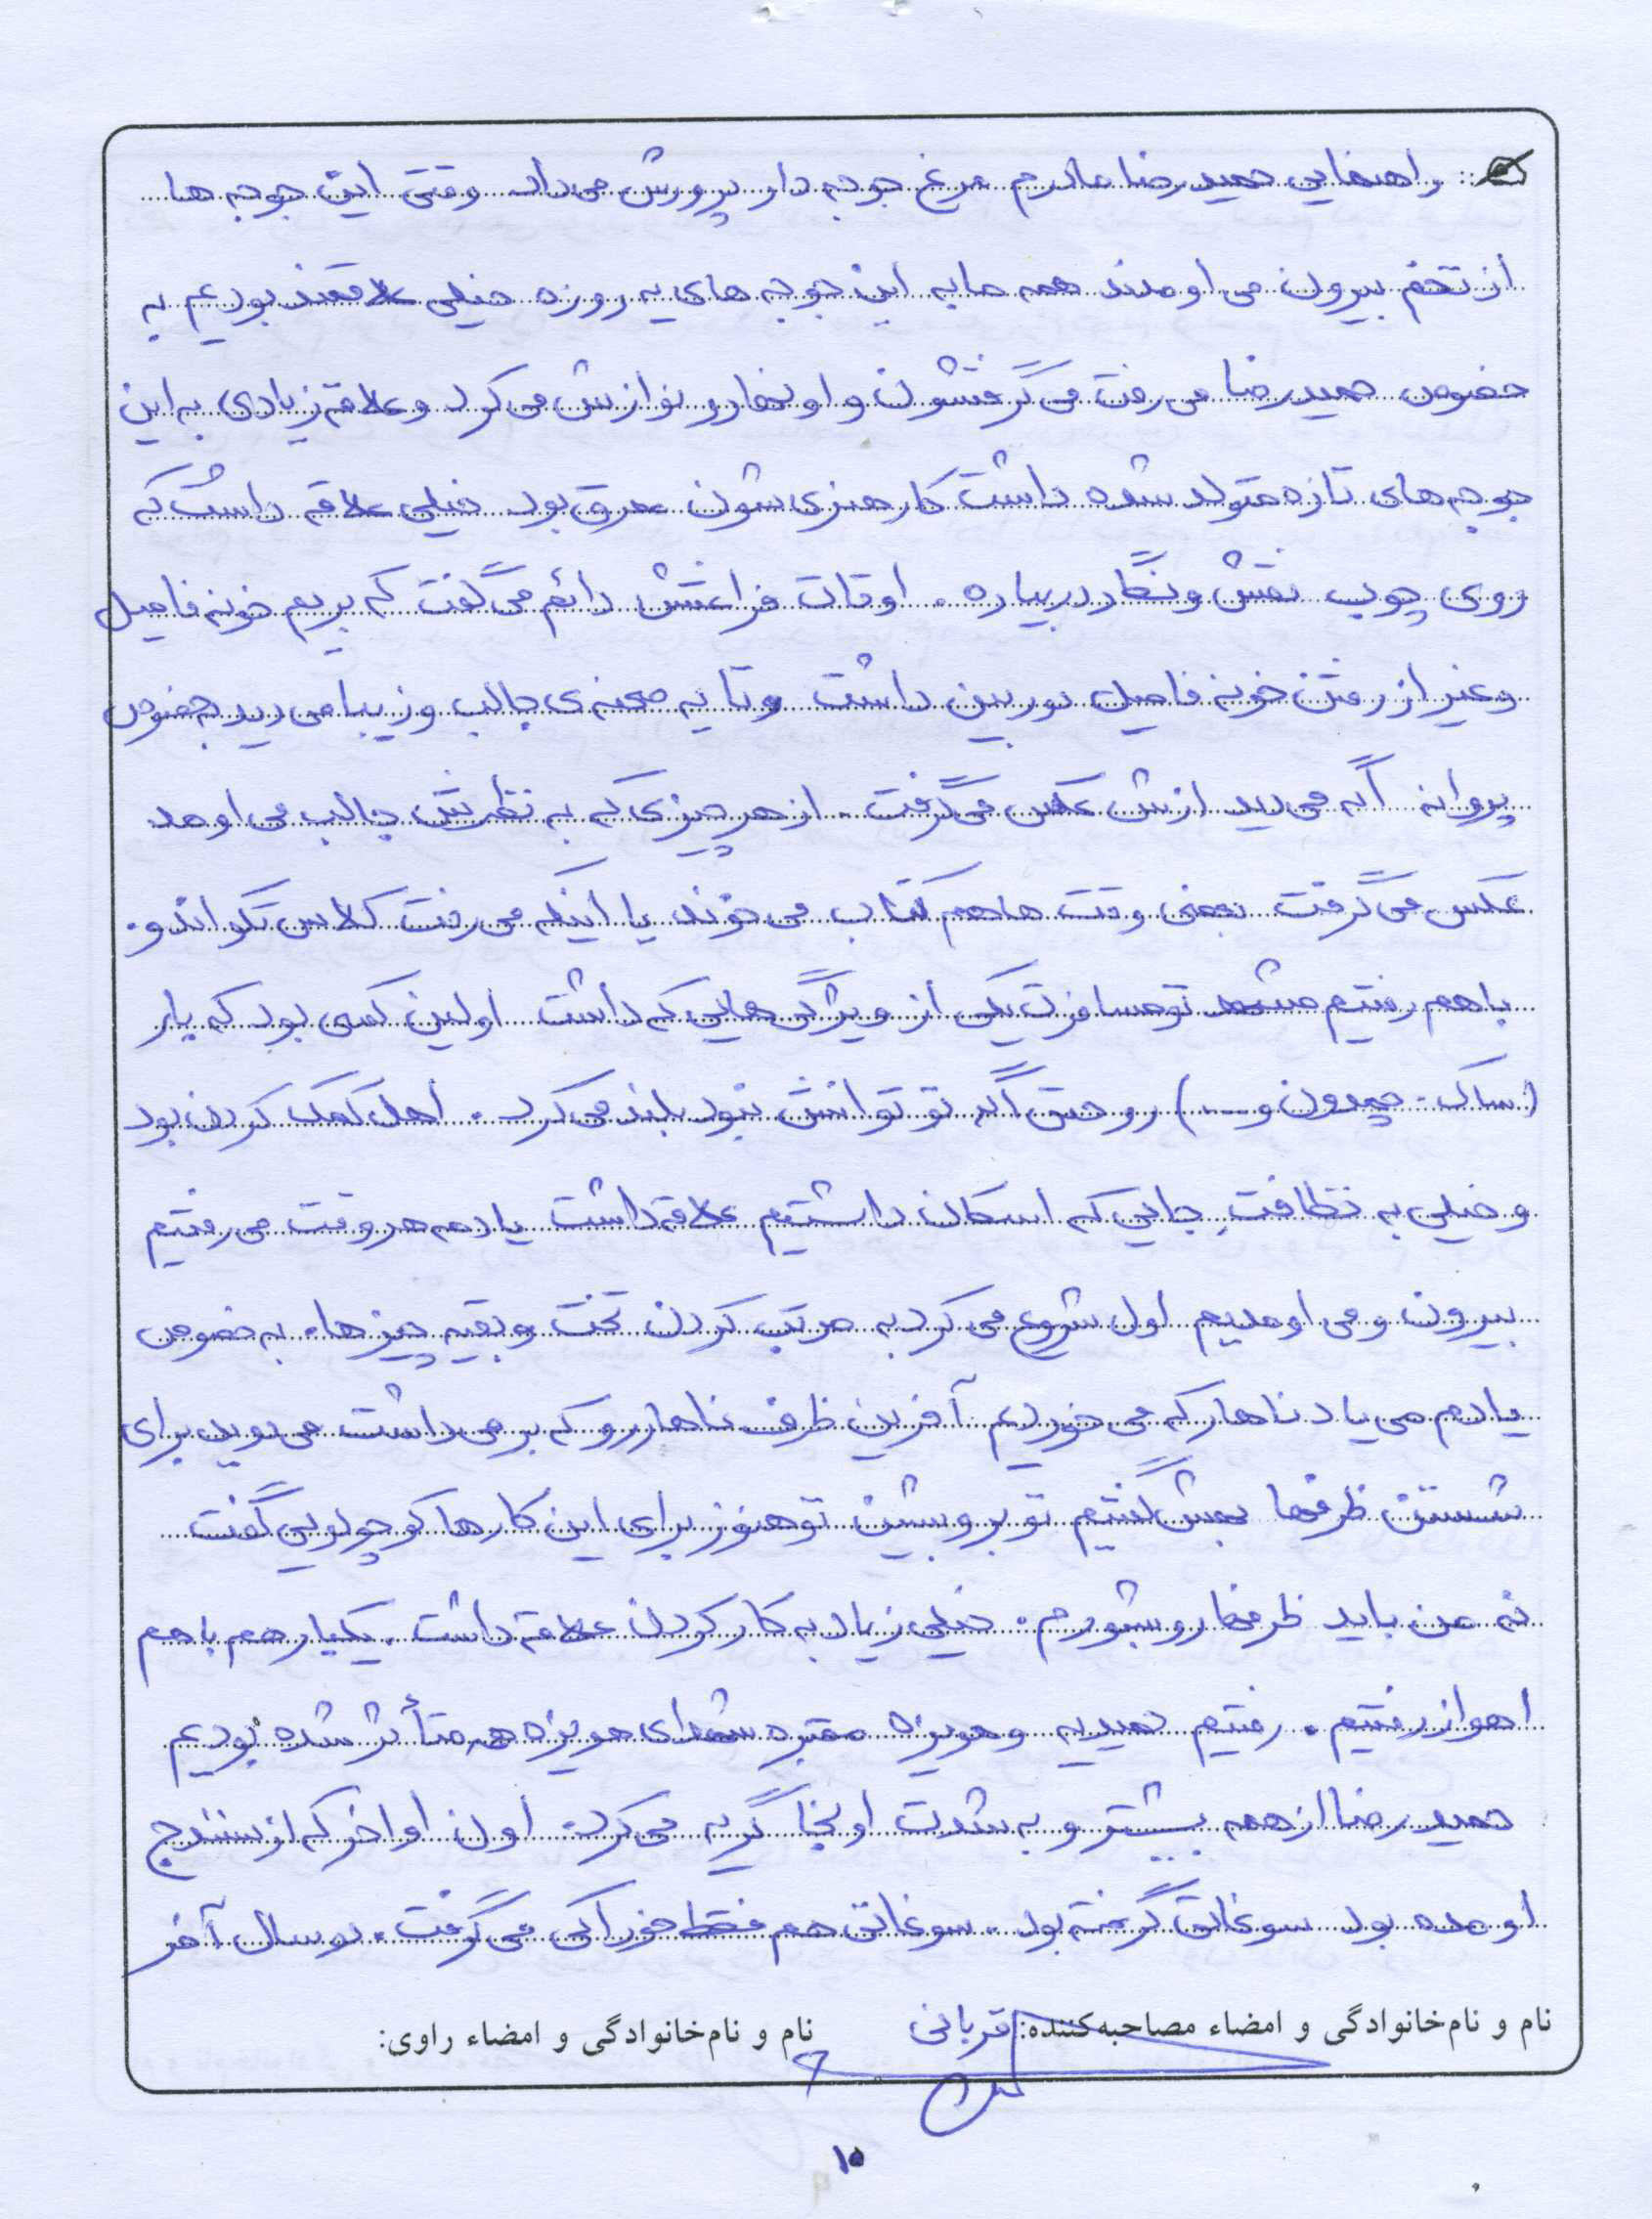 راهنمایی حمیدرضا مادرم مرغ جوجه دار پرورش می داد وقتی این جوجه ها
از تخم بیرون می اومدند همه ما به این جوجه های یه روزه خیلی علاقمند بودیم به
خصوص حمیدرضا می رفت می گرفتشون و اونها رو نوازش می کرد و علاقه زیادی به این
جوجه های تازه متولد شده داشت کار هنری شون معرق بود خیلی علاقه داشت که
روی چوب نقش و نگار دربیاره . اوقات فراغتش دائم می گفت که بریم خونه فامیل
و غیر از رفتن خونه فامیل دوربین داشت و تا یه صحنه ی جالب و زیبا می دید بخصوص
پروانه اگه می دید ازش عکس می گرفت . از هر چیزی که به نظرش جالب می اومد
عکس می گرفت بعضی وقت ها هم کتاب می خوند یا اینکه می رفت کلاس تکواندو .
باهم رفتیم مشهد تو مسافرت یکی از ویژگی هایی که داشت اولین کسی بود که بار
(ساک - چمدون و ....) رو حتی اگه تو توانش نبود بلند می کرد . اهل کمک کردن بود
و خیلی به نظافت جایی که اسکان داشتیم علاقه داشت یادمه هر وقت می رفتیم
بیرون و می اومدیم اول شروع می کرد به مرتب کردن تخت و بقیه چیزها . به خصوص
یادم می یاد ناهار که می خوردیم آخرین ظرف ناهار رو که بر می داشت می دوید برای
شستن ظرفها بهش گفتیم تو برو بشین تو هنوز برای این کارها کوچولویی گفت
نه من باید ظرفها رو بشورم . خیلی زیاد به کار کردن علاقه داشت . یکبار هم باهم
اهواز رفتیم . رفتیم حمیدیه و هویزه مقبره شهدای هویزه همه متأثر شده بودیم
حمیدرضا از همه بیشتر و به شدت اونجا گریه می کرد . اون اواخر که از سنندج
اومده بود سوغاتی گرفته بود . سوغاتی هم فقط خوراکی می گرفت . دو سال آخر
نام و نام‌خانوادگی و امضاء مصاحبه‌کننده: قربانی
نام و نام‌خانوادگی و امضاء راوی:
۱۵